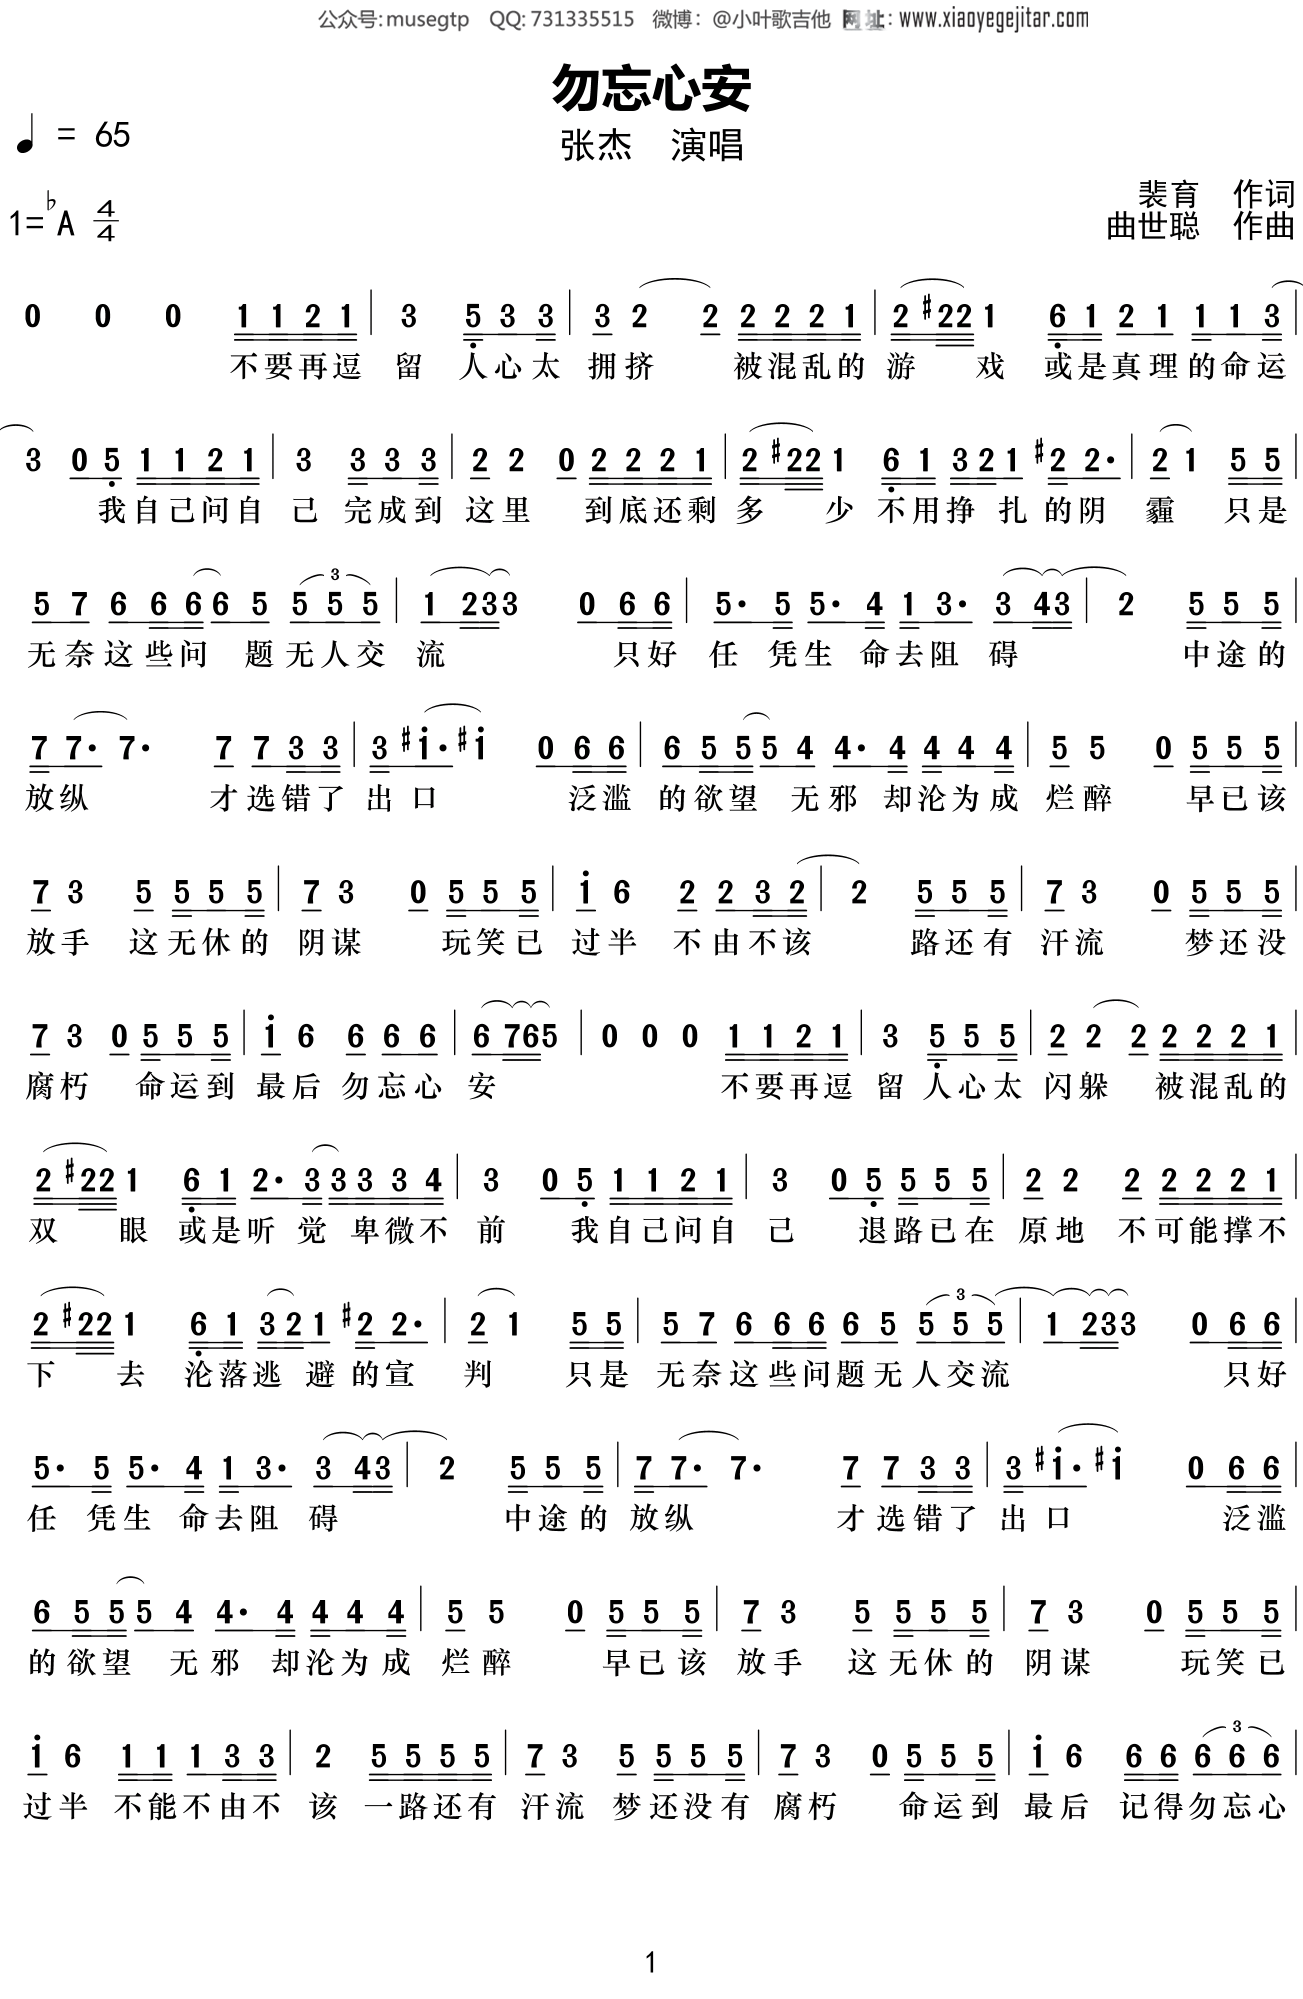 公众号:musegtp QQ:731335515 微博：@小叶歌吉他 网 址：www.xiaoyegejitar.com
勿忘心安
♩ = 65
张杰 演唱
裴育 作词
1=♭A 4/4
曲世聪 作曲
0 0 0 1 1 2 1 | 3 5 3 3 | 3 2 2 2 2 2 1 | 2 #2 2 1 6 1 2 1 1 1 3 |
不要再逗 留 人心太 拥挤 被混乱的 游 戏 或是真理的命运
3 0 5 1 1 2 1 | 3 3 3 3 | 2 2 0 2 2 2 1 | 2 #2 2 1 6 1 3 2 1 #2 2· | 2 1 5 5 |
我自己问自 己 完成到 这里 到底还剩 多 少 不用挣 扎 的阴 霾 只是
5 7 6 6 6 6 5 5 5 5 | 1 2 3 3 0 6 6 | 5· 5 5· 4 1 3· 3 4 3 | 2 5 5 5 |
3
无奈这些问 题 无人交 流 只好 任 凭生 命去阻 碍 中途的
7 7· 7· 7 7 3 3 | 3 #1· #1 0 6 6 | 6 5 5 5 4 4· 4 4 4 4 | 5 5 0 5 5 5 |
放纵 才选错了 出口 泛滥 的欲望 无邪 却沦为成 烂醉 早已该
7 3 5 5 5 5 | 7 3 0 5 5 5 | 1 6 2 2 3 2 | 2 5 5 5 | 7 3 0 5 5 5 |
放手 这无休的 阴谋 玩笑已 过半 不由不该 路还有 汗流 梦还没
7 3 0 5 5 5 | 1 6 6 6 6 | 6 7 6 5 | 0 0 0 1 1 2 1 | 3 5 5 5 | 2 2 2 2 2 2 1 |
腐朽 命运到 最后 勿忘心 安 不要再逗 留 人心太 闪躲 被混乱的
2 #2 2 1 6 1 2· 3 3 3 3 4 | 3 0 5 1 1 2 1 | 3 0 5 5 5 5 | 2 2 2 2 2 2 1 |
双 眼 或是听 觉 卑微不 前 我自己问自 己 退路已在 原地 不可能撑不
2 #2 2 1 6 1 3 2 1 #2 2· | 2 1 5 5 | 5 7 6 6 6 6 5 5 5 5 | 1 2 3 3 0 6 6 |
3
下 去 沦落逃 避 的宣 判 只是 无奈这些问题无人交流 只好
5· 5 5· 4 1 3· 3 4 3 | 2 5 5 5 | 7 7· 7· 7 7 3 3 | 3 #1· #1 0 6 6 |
任 凭生 命去阻 碍 中途的 放纵 才选错了 出口 泛滥
6 5 5 5 4 4· 4 4 4 4 | 5 5 0 5 5 5 | 7 3 5 5 5 5 | 7 3 0 5 5 5 |
的欲望 无邪 却沦为成 烂醉 早已该 放手 这无休的 阴谋 玩笑已
1 6 1 1 1 3 3 | 2 5 5 5 5 | 7 3 5 5 5 5 | 7 3 0 5 5 5 | 1 6 6 6 6 6 6 |
3
过半 不能不由不 该 一路还有 汗流 梦还没有 腐朽 命运到 最后 记得勿忘心
1